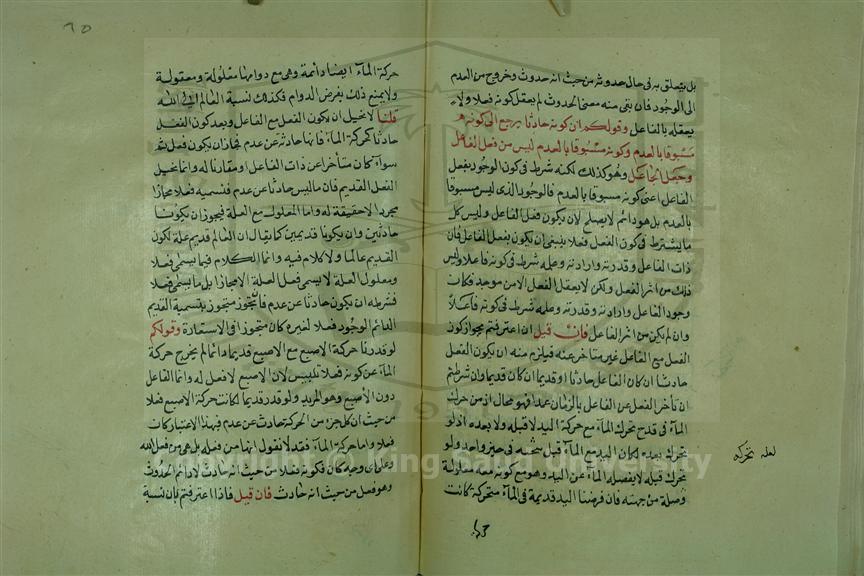 بل يتعلق به فى حال حدوثه من حيث انه حدوث وخروج من العدم
الى الوجود فان نفى منه معنى الحدوث لم يعقل كونه فعلا ولا
يعقله بالفاعل وقولكم ان كونه حادثا يرجع الى كونه
مسبوقا بالعدم وكونه مسبوقا بالعدم ليس من فعل الفاعل
وجعل الجاعل وهو كذلك لكنه شرط فى كون الوجود بفعل
الفاعل اعنى كونه مسبوقا بالعدم فالوجود الذى ليس مسبوقا
بالعدم بل هو دائم لا يصلح لان يكون فعل الفاعل وليس كل
ما يشترط فى كون الفعل فعلا ينبغى ان يكون بفعل الفاعل فان
ذات الفاعل وقدرته وارادته وعلمه شرط فى كونه فاعلا وليس
ذلك من اثر الفعل ولكن لا يعقل الفعل الا من موجد فكان
وجود الفاعل وارادته وقدرته وعلمه شرط فى كونه فاعلا
وان لم يكن من اثر الفاعل فان قيل ان اعترفتم بجواز كون
الفعل مع الفاعل غير متاخر عنه فيلزم منه ان يكون الفعل
حادثا ان كان الفاعل حادثا او قديما ان كان قديما وان شرطتم
ان تأخر الفعل عن الفاعل بالزمان فهو محال اذ من حرك
الماء فى قدح تحرك الماء مع حركة اليد لا قبله ولا بعده اذ لو
تحرك بعده لكان اليد مع الماء قبل تنحيه فى حيز واحد ولو
تحرك قبله لا يفصله الماء عن اليد وهو مع كونه معه معلولة
وفعله من جهته فان فرضنا اليد قديمة فى الماء متحركة كانت
لعله تحركه
حركة الماء ايضا دائمة وهى مع دوامها معلولة ومعقولة
ولا يمنع ذلك بفرض الدوام فكذلك نسبة العالم الى الله
قلنا لا نحيل ان يكون الفعل مع الفاعل وبعد كون الفعل
حادثا كحركة الماء فانها حادثة عن عدم فجاز ان يكون فعلا ثم
سواء كان متأخرا عن ذات الفاعل او مقارنا له وانما نحيل
الفعل القديم فان ما ليس حادثا عن عدم فتسميه فعلا مجازا
مجرد لا حقيقة له واما المعلول مع العلة فيجوز ان يكونا
حادثين وان يكونا قديمين كما يقال ان العالم قديم علة لكون
القديم عالما ولا كلام فيه وانما الكلام فيما يسمى فعلا
ومعلول العلة لا يسمى فعل العلة الا مجازا بل ما يسمى فعلا
فشرطه ان يكون حادثا عن عدم فان تجوز متجوز بتسمية القديم
الدائم الوجود فعلا لغيره كان متجوزا فى الاستعارة وقولكم
لو قدرنا حركة الاصبع مع الاصبع قديما دائما لم يخرج حركة
الماء عن كونه فعلا تلبيس لان الاصبع لا فعل له وانما الفاعل
دون الاصبع وهو المريد ولو قدر قديما لكانت حركة الاصبع فعلا
من حيث ان كل جزء من الحركة حادث عن عدم فبهذا الاعتبار كانت
فعلا واما حركة الماء فقد لا نقول انها من فعله بل هى من فعل الله
وعلى اى وجه كان فكونه فعلا من حيث انه حادث لا دائم الحدوث
وهو فعل من حيث انه حادث فان قيل فاذا اعترفتم بان نسبة
Copyright © King Saud University